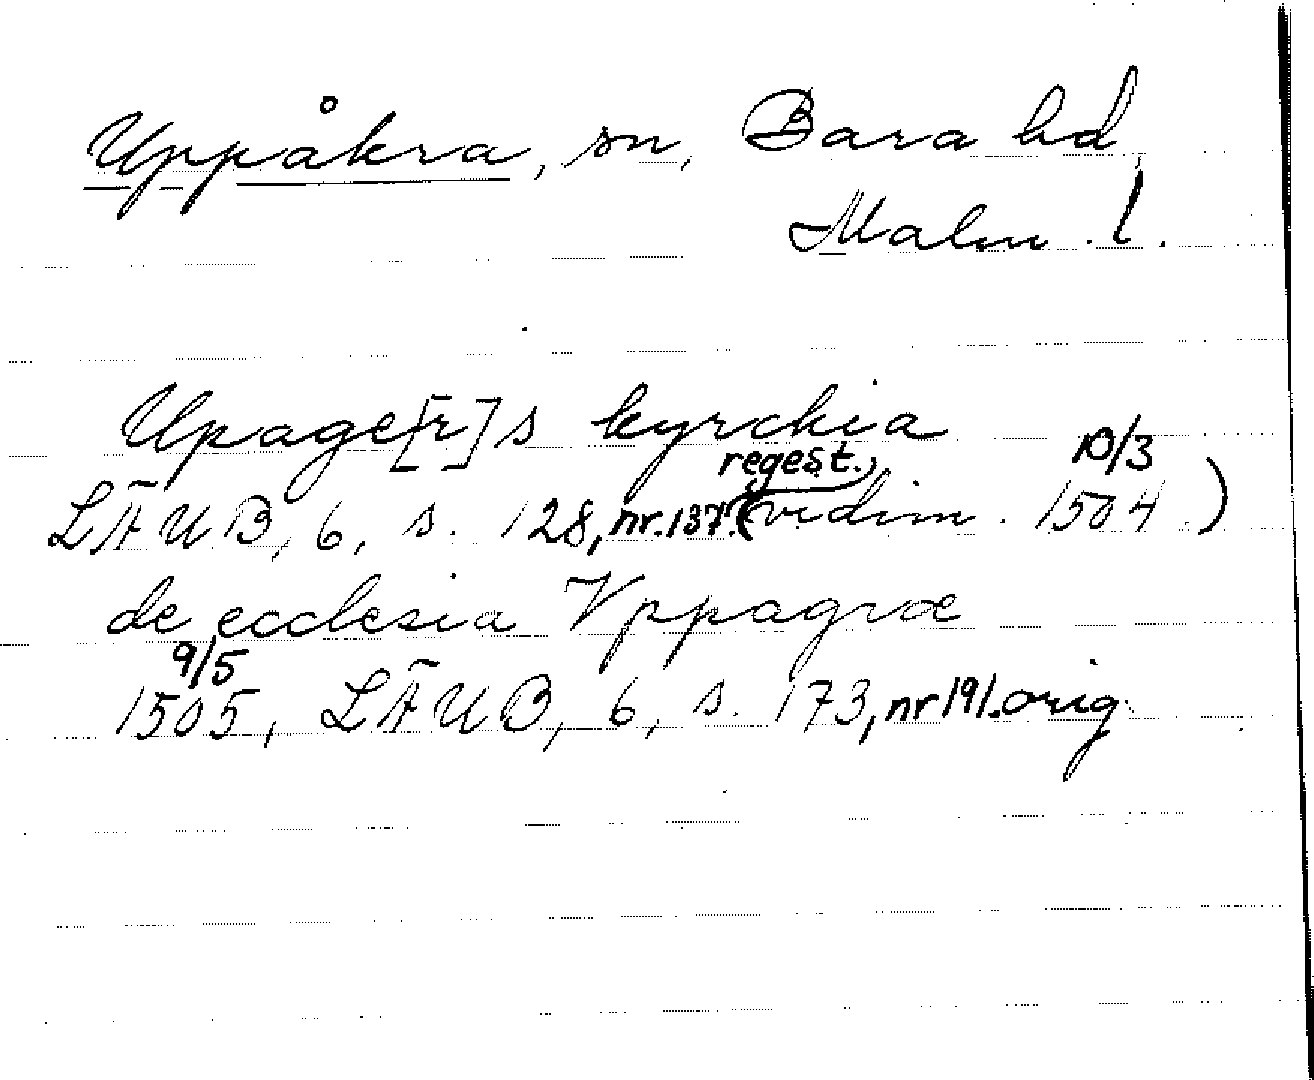 Uppåkra, sn, Bara hd,
Malm. l.
Upage[r]s kyrchia
regest., 10/3
LÄUB, 6, s. 128, nr. 137. (vidim. 1504.)
de ecclesia Vppagræ
9/5
1505, LÄUB, 6, s. 173, nr 191. orig.